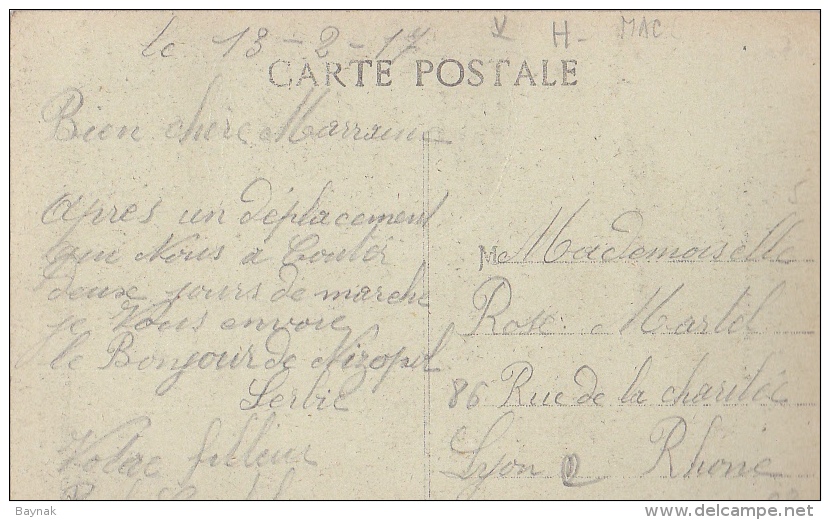 le 13-2-17
V H- MAC
CARTE POSTALE
Bien chere Marraine
Après un déplacement
qui Nous a Couter
deux jours de marche
je Vous envoie
le Bonjour de Nizopol
Serbie
Votre filleul
Me Mademoiselle
Rose Martel
86 Rue de la charitée
Lyon Rhone
Baynak
www.delcampe.net